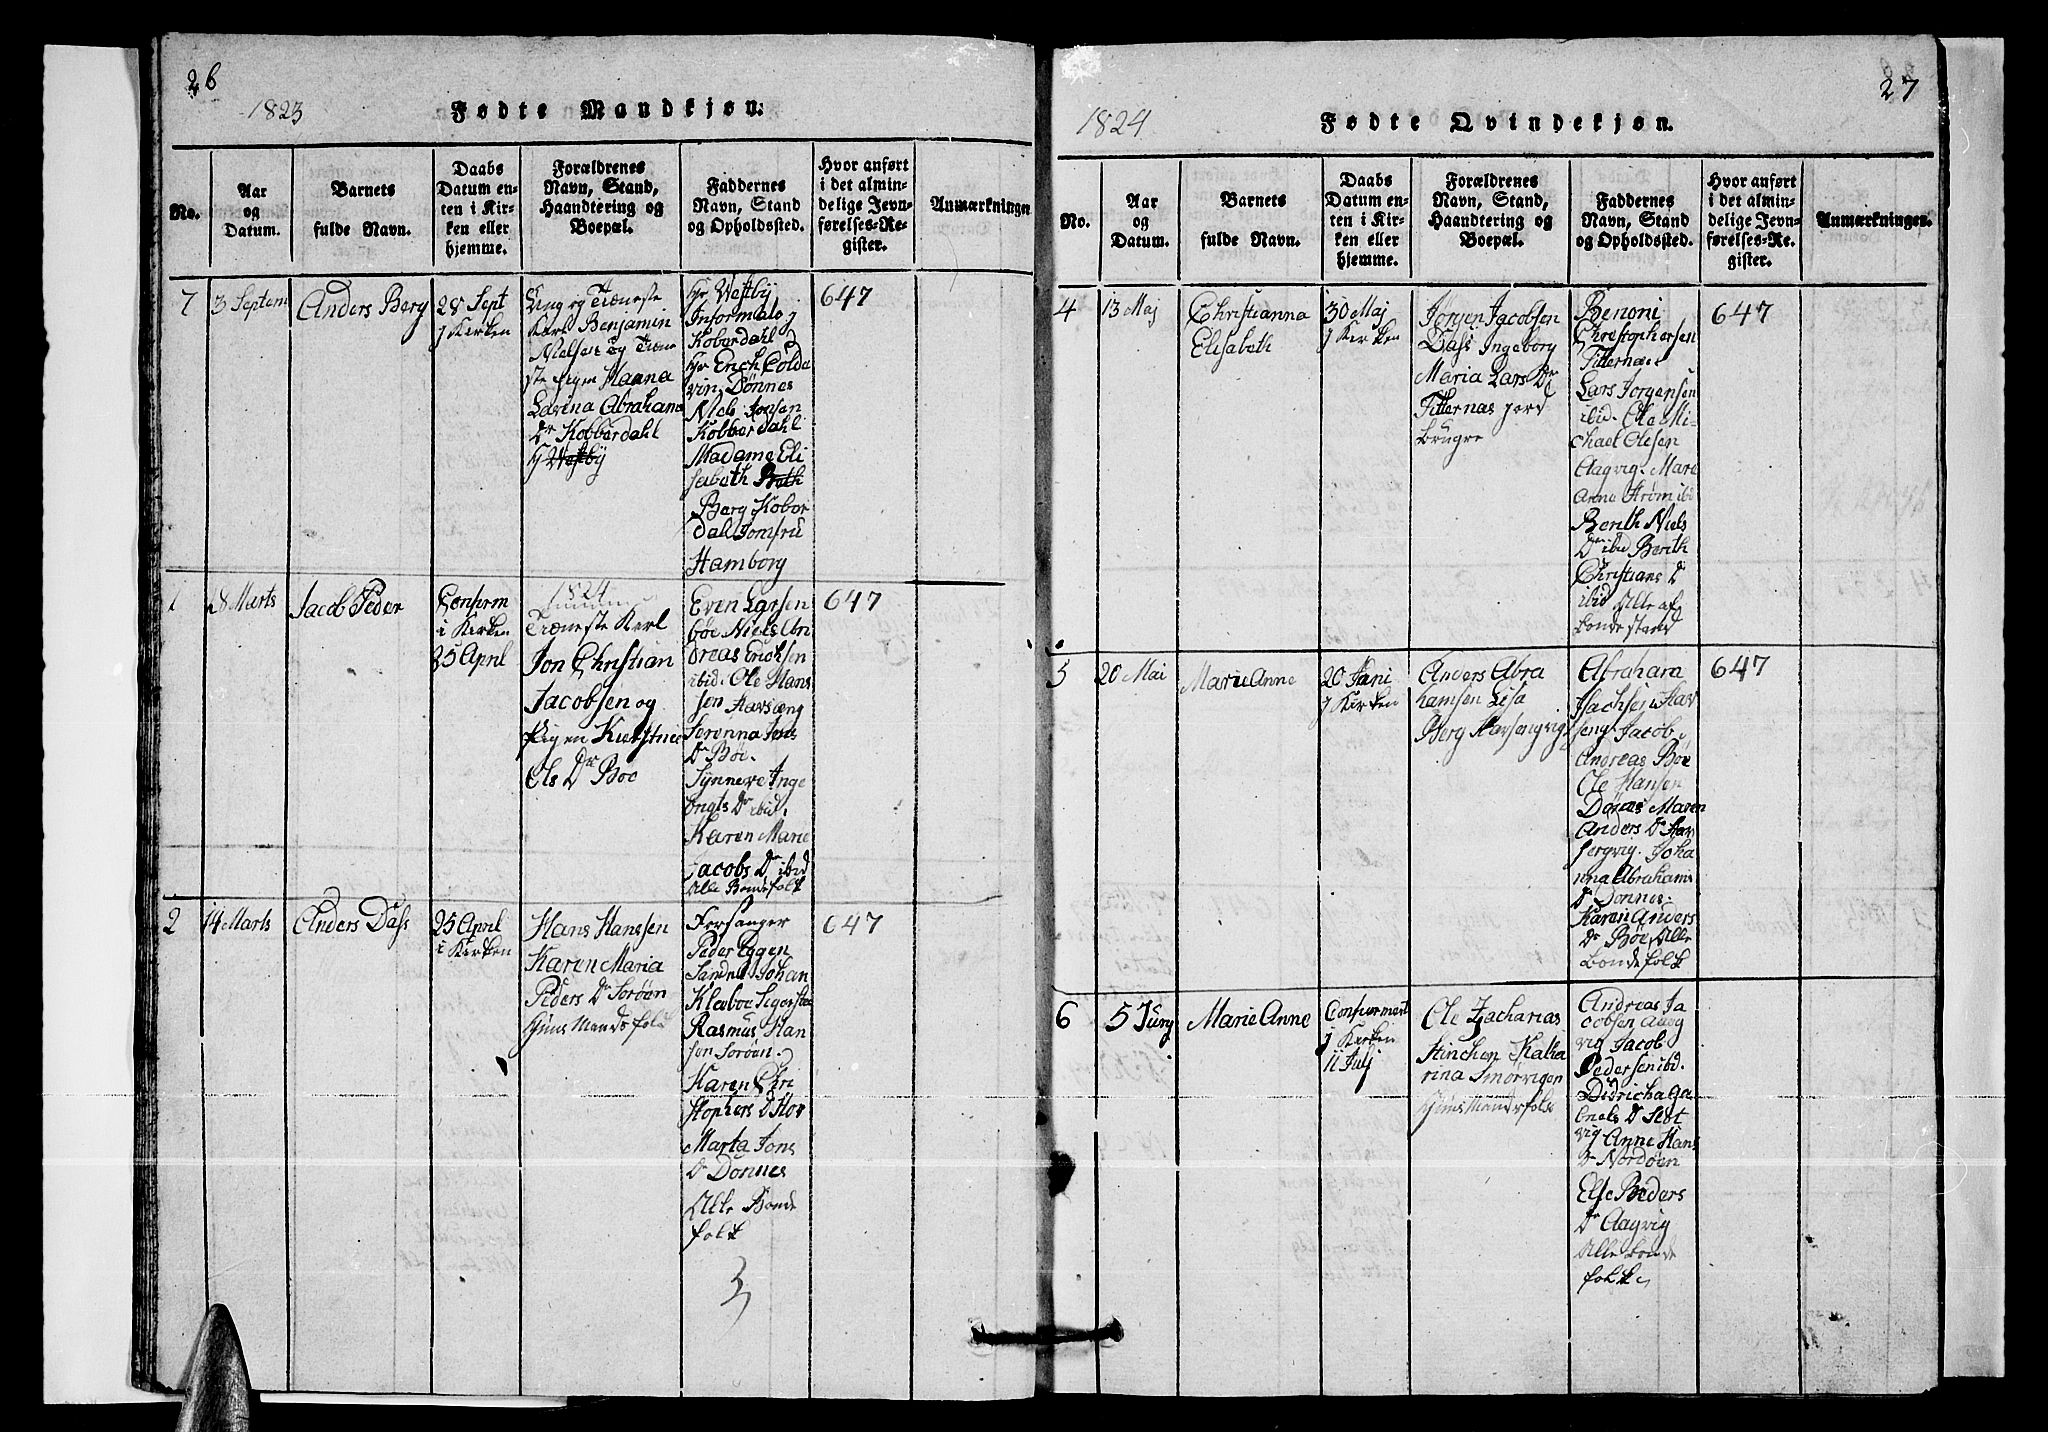 26
1823
Fødte Mandkjøn.
No.
Aar
og
Datum.
Barnets
fulde Navn.
Daabs
Datum en-
ten i Kir-
ken eller
hjemme.
Forældrenes
Navn, Stand,
Haandtering og
Boepæl.
Faddernes
Navn, Stand
og Opholdssted.
Hvor anført
i det almin-
delige Jevn-
førelses-Re-
gister.
Anmærkninger
7
3 Septem
Anders Berg
28 Sept
j Kirken
Ung og Tieneste
Karl Benjamin
Nielsen og Tiene
ste pigen Hanna
Lavina Abrahams
Dr Kobberdahl
Hr Westby
Hr Westby
Informator j
Koberdahl
Hr Erich Colde
vin Dønnes
Niels Jonsen
Kobberdahl
Madame Eli
sabeth
Berg Kobor
dal Jomfru
Hamborg
647
1
8 Marts
Jacob Peder
Conferm
i Kirken
25 April
1824
Tieneste Karl
Jon Christian
Jacobsen og
Pigen Kirstine
Ols Dr Boe
Even Larsen
bøe Niels An
dreas Erichsen
ibid. Ole Hans
sen Havsæng
Serenna Jons
Dr Bøe.
Synneve Inge
brigts Dr ibid.
Karen Marie
Jacobs Dr ibid
Alle Bondefolk
647
2
14 Marts
Anders Dass
25 April
i Kirken
Hans Hanssen
Karen Maria
Peders Dr Sorøen
Huus Mandsfolk
Forsanger
Peder Eggen
Sandnes Johan
Kleboe
Rasmus Han
sen Sorøen.
Karen Chri
stophers D Hov
Marta Jons
Dr Dønnes
Alle Bonde
folk
647
27
1824
Fødte Qvindekjøn.
No.
Aar
og
Datum.
Barnets
fulde Navn.
Daabs
Datum en-
ten i Kir-
ken eller
hjemme.
Forældrenes
Navn, Stand,
Haandtering og
Boepæl.
Faddernes
Navn, Stand
og Opholdssted.
Hvor anført
i det almin-
delige Jevn-
førelses-Re-
gister.
Anmærkninger.
4
13 Maj
Christianna
Elisabeth
30 Maj
j Kirken
Jørgen Jacobsen
Dass Ingeborg
Maria Lars Dr
Titternas jord
brugre
Benoni
Christophersen
Titternæs
Lars Jørgensen
ibid. Ole Mi
chael Olesen
Aagvig. Mari
Anna Strøm ibid
Berith Niels
Dr ibid Berith
Christians D
ibid Alle af
bondestand
647
5
20 Mai
Marie Anne
20 Juni
j Kirken
Anders Abra
hamsen Lisa
Berg Havsengvig
Abraham
Isachsen Hav
seng Jacob
Andreas Bøe
Ole Hansen
Dønæs Maren
Anders Dr Hav
sengvig. Joha
nna Abrahams
D Dønnes.
Karen Anders
Dr Bøe, Alle
bondefolk
647
6
5 Junj
Marie Anne
Confermert
j Kirken
11 Julj
Ole Zacharias
Hinchen Katha
rina Smørvigen
Huus Mandsfolk
Andreas Ja
cobsen Aagvig
vig Jacob
Pedersen ibd.
Didricha Ga
briels Dr Slot
vig Anne Hans
Dr Nordøen
Else Peders
Dr Aagvig
Alle bonde
folk